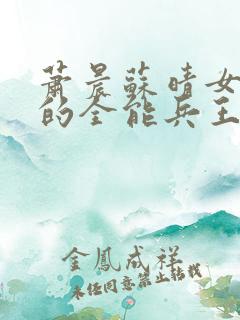 蕭晨蘇晴女
的全能兵王
金鳳成祥
未經同意禁止轉載